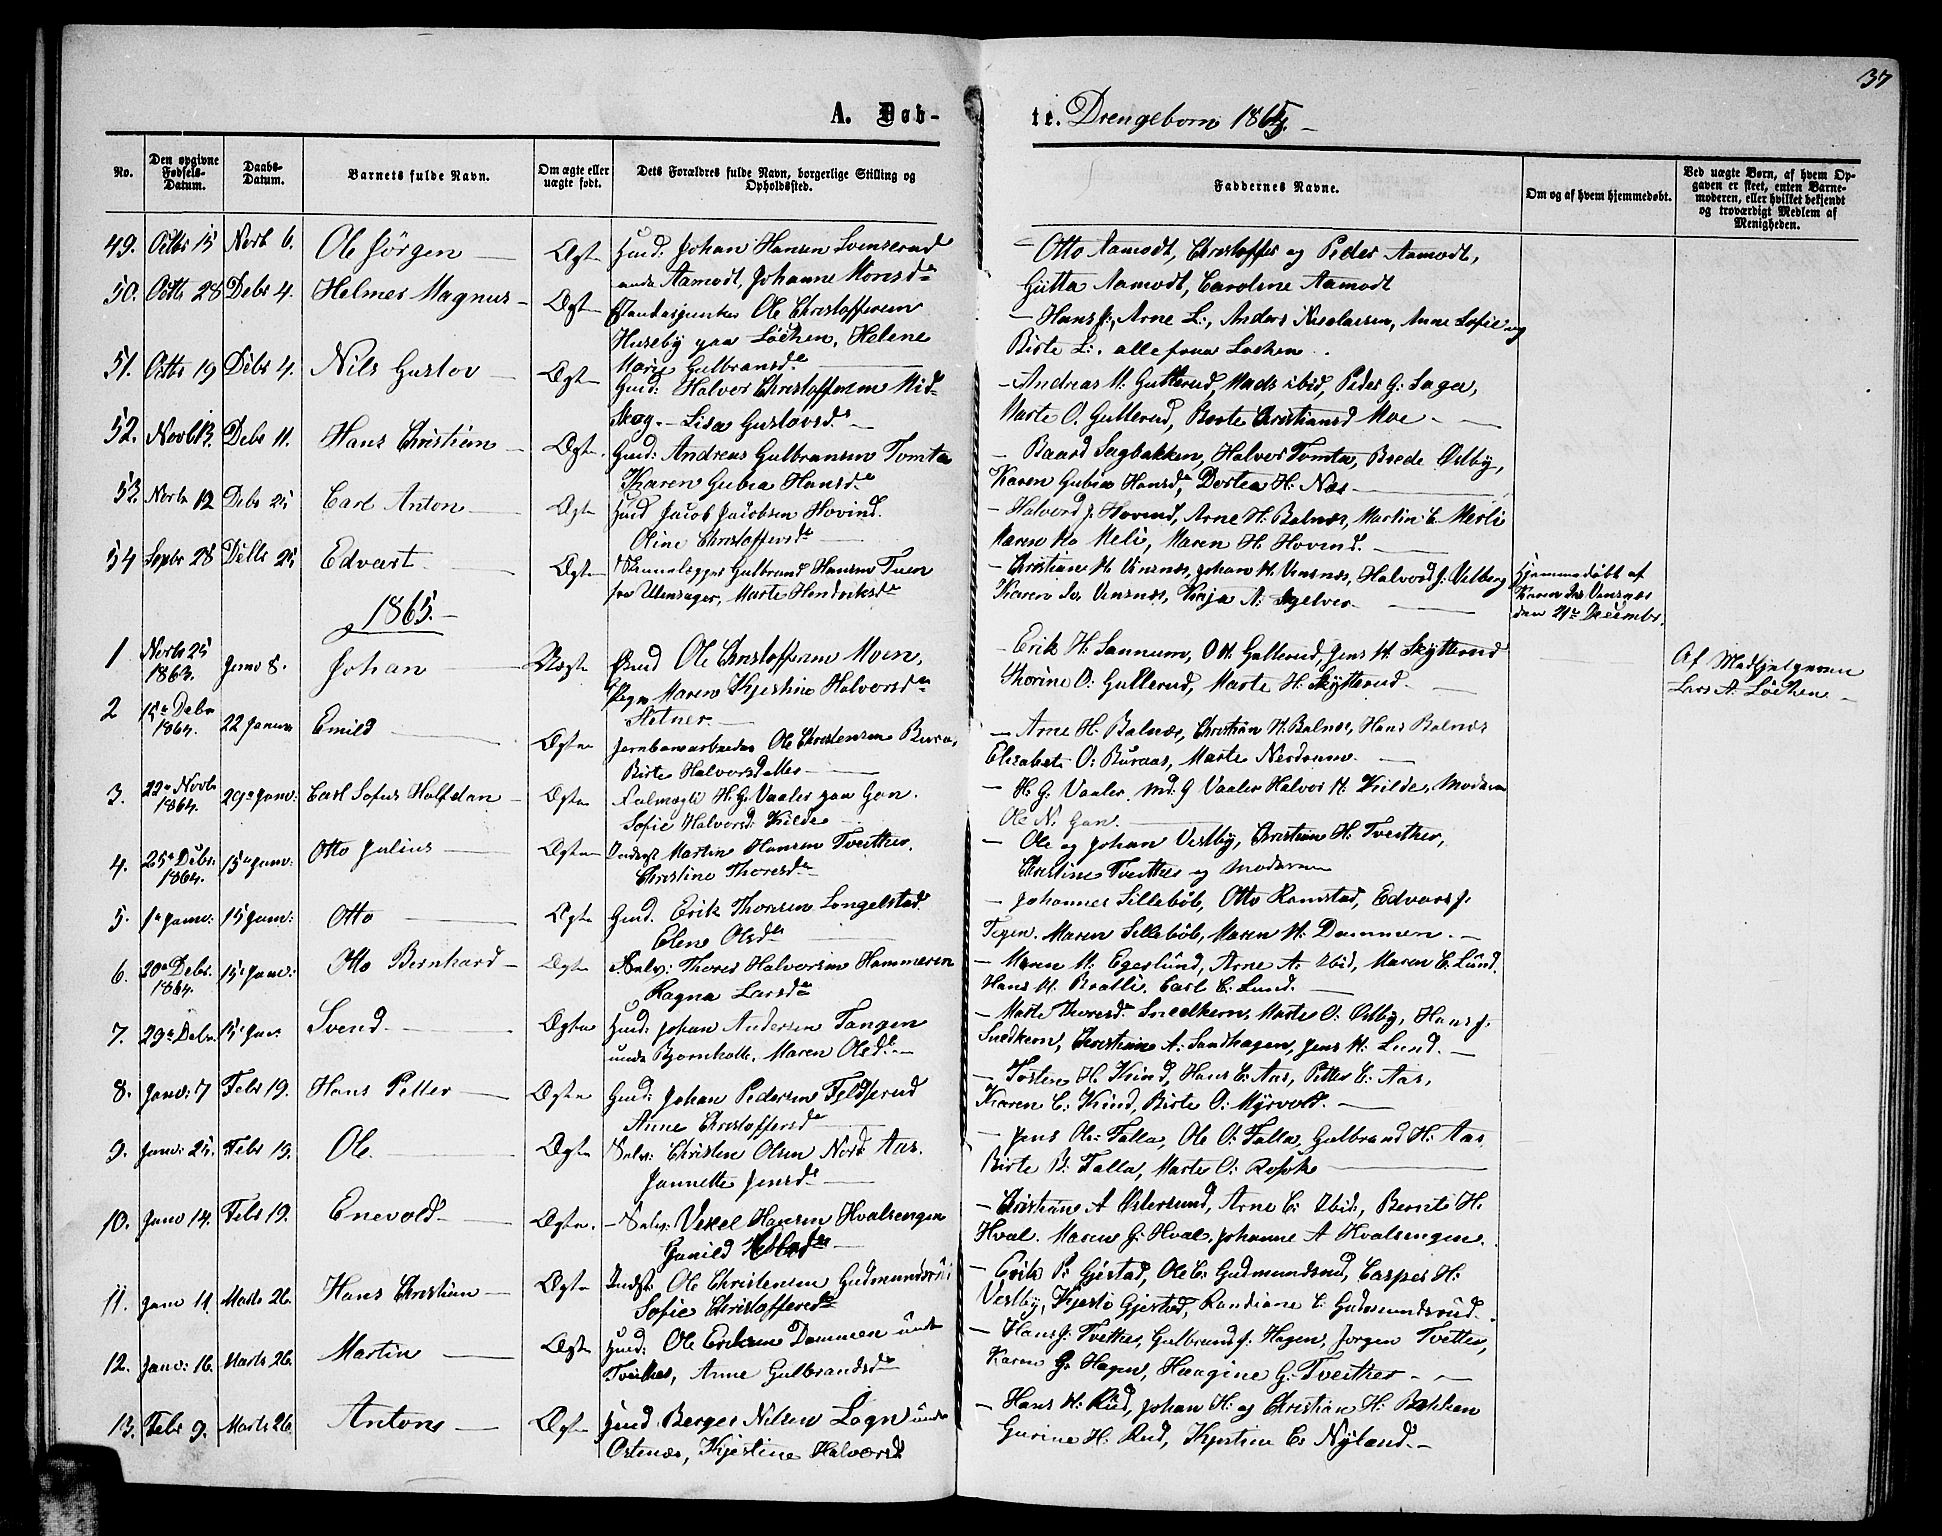 37
A. Døb-
te. Drengeborn 1865.
No.
Den opgivne Fødsels-Datum.
Daabs-Datum.
Barnets fulde Navn.
Om ægte eller uægte født.
Dets Forældres fulde Navn, borgerlige Stilling og Opholdssted.
Faddernes Navne.
Om og af hvem hjemmedøbt.
Ved uægte Børn, af hvem Opgaven er skeet, enten Barnemoderen, eller hvilket bekjendt og troværdigt Medlem af Menigheden.
49. Octbr 15 Novb 6. Ole Jörgen Ægte Huusd. Johan Hansen Svenserud
under Aamodt, Johanne Monsdr
Otto Aamodt, Christoffer og Peder Aamodt,
Gutta Aamodt, Caroline Aamodt
50. Octb 28 Debr 4. Helmer Magnus Ægte Ole Christoffersen
Huseby paa Löchen, Helene
Marie Gulbransdr
Hans J:, Arne L:, Anders Nicolaisen, Anne Sofie og
Birte L:, alle fraa Lochen.
51. Octbr 19 Debr 4. Nils Gustov Ægte Huusd: Halvor Christoffersen Mid-
skog. - Lisa Gustavsdr
Andreas M. Gullerud, Mads ibid, Peder G: Saga,
Marte O. Gullerud, Berte Christiansd Moe
52. Novb 13. Debr 11. Hans Christian Ægte. Huusd: Andreas Gulbransen Tomta
Karen Gubea Hansdr
Baard Sagbakken, Halvor Tomta, Brede Østby,
Karen Gubea Hansdr, Dortea H: Næs
53. Novbr 12 Debr 25 Carl Anton Ægte Huusd Jacob Jacobsen Hovind.
Oline Christoffersdr
Halvord J: Hovind, Arne H. Balnæs, Martin C. Merli
Maren Ka Meli, Maren H. Hovind.
54 Sepbr 28 Debr 25 Edvart Ægte Gulbrand Hansen Tuen
fra Ullensager, Marte Hendriksdr
Christian M. Vinsnæs, Johan M. Vinsnæs, Halvord J: Velberg
Karen Vinsnæs, Kaja A:
Hjemmedöbt af
Karen Vinsnæs
den 21de December.
1865.
1 Novbr 25 1863. Janv 8. Johan Uægte Huusd Ole Christoffersen Moen,
Pige Maren Kjestine Halvorsdr
Stotner
Erik H. Sannum, O H. Gullerud, Jens M. Skytterud
Thorine O: Gullerud, Marte H. Skytterud.
Af Medhjælperen
Lars A. Löchen
2 15de Debr 1864. 22 Januar Emild Ægte Jernbanearbeider Ole Christensen
Birte Halvorsdatter
Arne H. Balnæs, Christian H. Balnæs, Hans Balnæs
Elisabet O: Buraas, Marte Nerdrum
3. 22de Novbr 1864. 29de Janv: Carl Sofus Halfdan Ægte Fulmægti H. G. Vaaler paa Gan.
Sofie Halvorsd: Kilde
H. G. Vaaler, Md. G Vaaler Halvor H. Kilde, Moderen
Ole N. Gan.
4. 25de Debr. 1864. 15de Janv: Otto Julius Ægte Inderst Martin Hansen Tveither,
Christine Thoresdr
Ole og Johan Vestby, Christian H. Tveither,
Christine Tveither og Moderen
5. 1de Janv: 15 Janv: Otto Ægte Huusd. Erik Thoresen Longelstad
Elene Olsdr
Johannes Sillebøl, Otto Ramstad, Edvard J:
Tegen. Maren Sillebøl, Maren H: Dammen.
6. 20de Debr. 1864. 15de Janv: Otto Bernhard Ægte Selv: Thores Halvorsen Hammeren
Ragna Larsdr
Maren M. Egerlund, Arne A: Ibid, Maren C. Lund.
Hans H. Bratli, Carl C. Lund.
7. 29de Debr. 15de Jan Svend Ægte Huusd: Johan Andersen Tangen
under Bjornholt. Maren Olsdr
Marte Thoresdr Snedkern, Marte O: Østby, Hans J:
Snedkern, Christian A: Sandhagen, Jens H. Lund.
8. Janv: 7 Febr 19. Hans Petter Ægte Huusd: Johan Pedersen Feldserud
Anne Christoffersdr
Tosten H. Kind, Hans C: Aas, Petter C: Aas,
Karen C: Kind, Birte O: Myrvold.
9. Janv: 25. Febr 19. Ole. Ægte Selv: Christen Olsen Nord Aas.
Jannette Jensdr
Jens Ole: Falla, Ole O: Falla, Gulbrand H: Aas
Birte B: Falla, Marte O:
10. Janv 14. Febr 19. Enevold Ægte. Selv: Vexel Hansen Hvalsengen
Gunild
Christian A Ostersund, Arne C: Ibid, Bernt H.
Hval. Maren G: Hval. Johanne A Kvalsengen.
11. Janv 11. Marts 26. Hans Christian Ægte Indst: Ole Christensen Gudmundsrud
Sofie Christoffersdr
Erik P. Gjestad, Ole C: Gudmundsrud, Casper H:
Vestby, Kjersti Gjestad, Randiane C. Gudmundsrud.
12. Janv: 16. Marts 26. Martin Ægte Huusd: Ole Eriksen Dammen under
Tveither, Anne Gulbrandsdr
Hans J: Tveither, Gulbrand J: Hagen, Jorgen Tvetter,
Karen G. Hagen, Haagine G. Tveither
13. Febr 9. Marts 26. Anton Ægte Huusd Berger Nilsen Logn under
Ostenæs, Kjestine Halvorsd
Hans H. Rud, Johan H. og Christian H. Bakken
Gurine H. Rud, Kjestine C. Nyland.